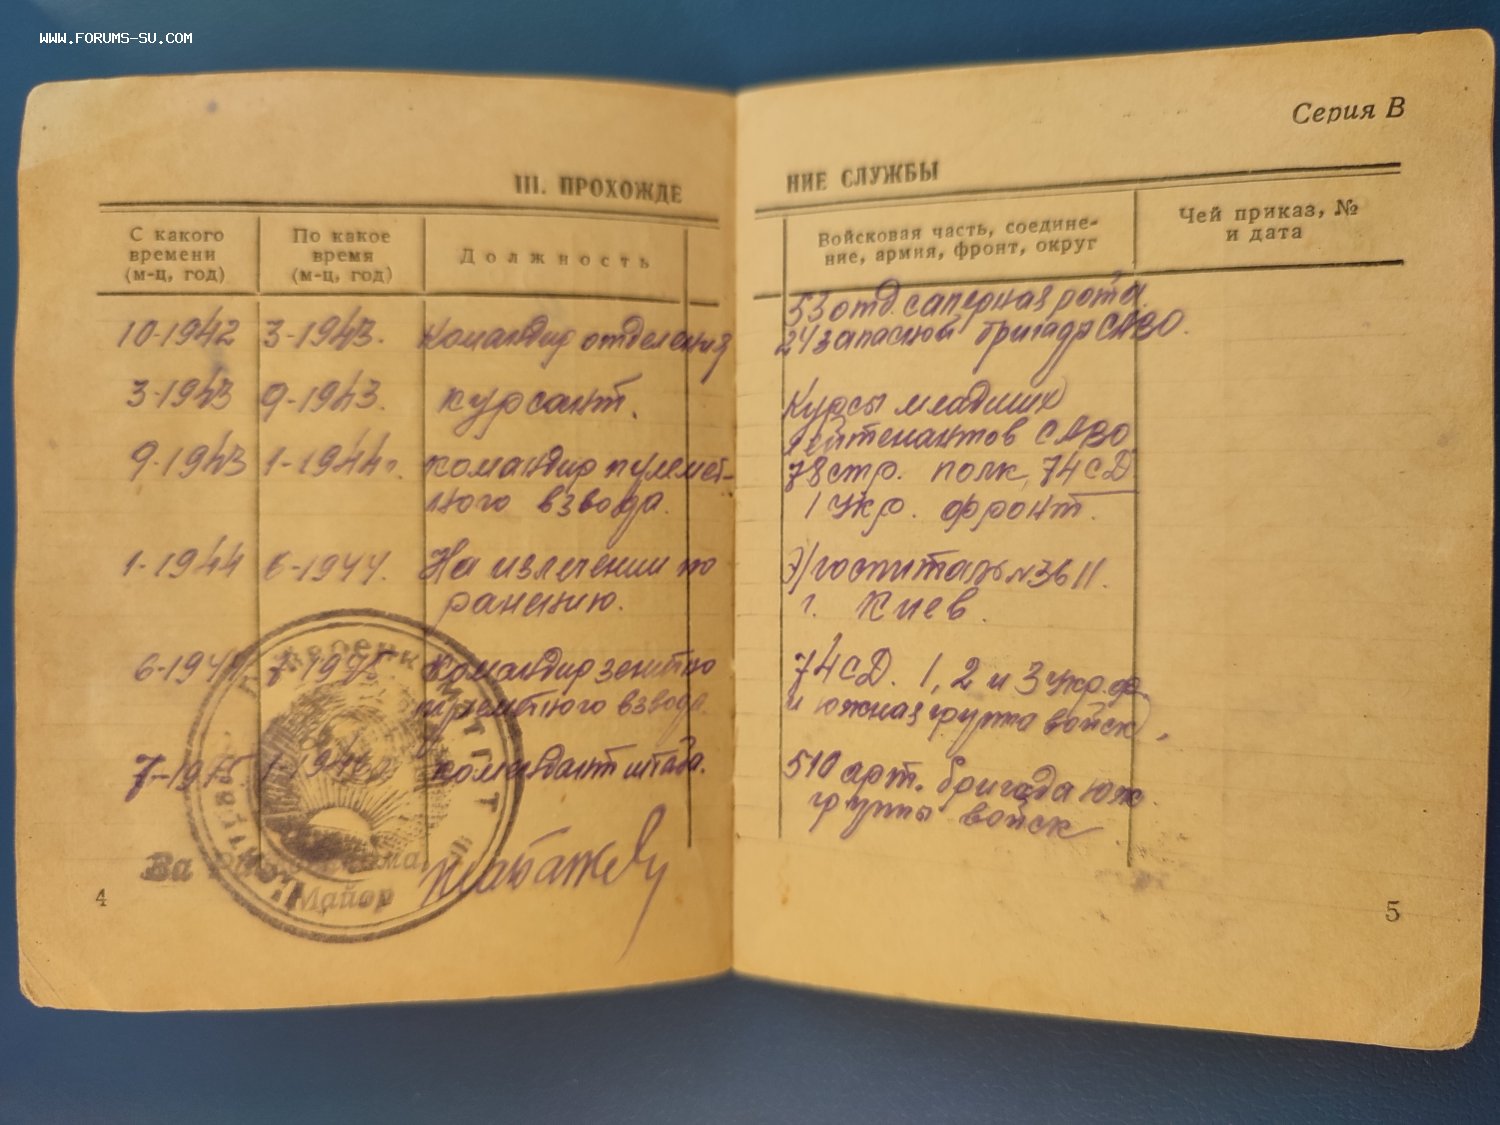 WWW.FORUMS-SU.COM
Серия В
III. ПРОХОЖДЕ
НИЕ СЛУЖБЫ
С какого времени (м-ц, год)
По какое время (м-ц, год)
Должность
Войсковая часть, соедине-
ние, армия, фронт, округ
Чей приказ, №
и дата
10-1942 3-1943. Командир отделения
53 отд. саперная рота
24 запасной бригады САВО.
3-1943 9-1943. курсант.
Курсы младших
лейтенантов САВО
9-1943 1-1944г. командир пулемет-
ного взвода.
78 стр. полк, 74 СД
1 Укр. фронт.
1-1944 6-1944. На излечении по
ранению.
Э/госпиталь №3611.
г. Киев.
6-1944 7-1945 Командир зенитно
пулеметного взвода.
74 СД. 1, 2 и 3 Укр. ф.
и южная группа войск,
7-1945 комендант штаба.
510 арт. бригада юж
группы войск
Майор
4
5